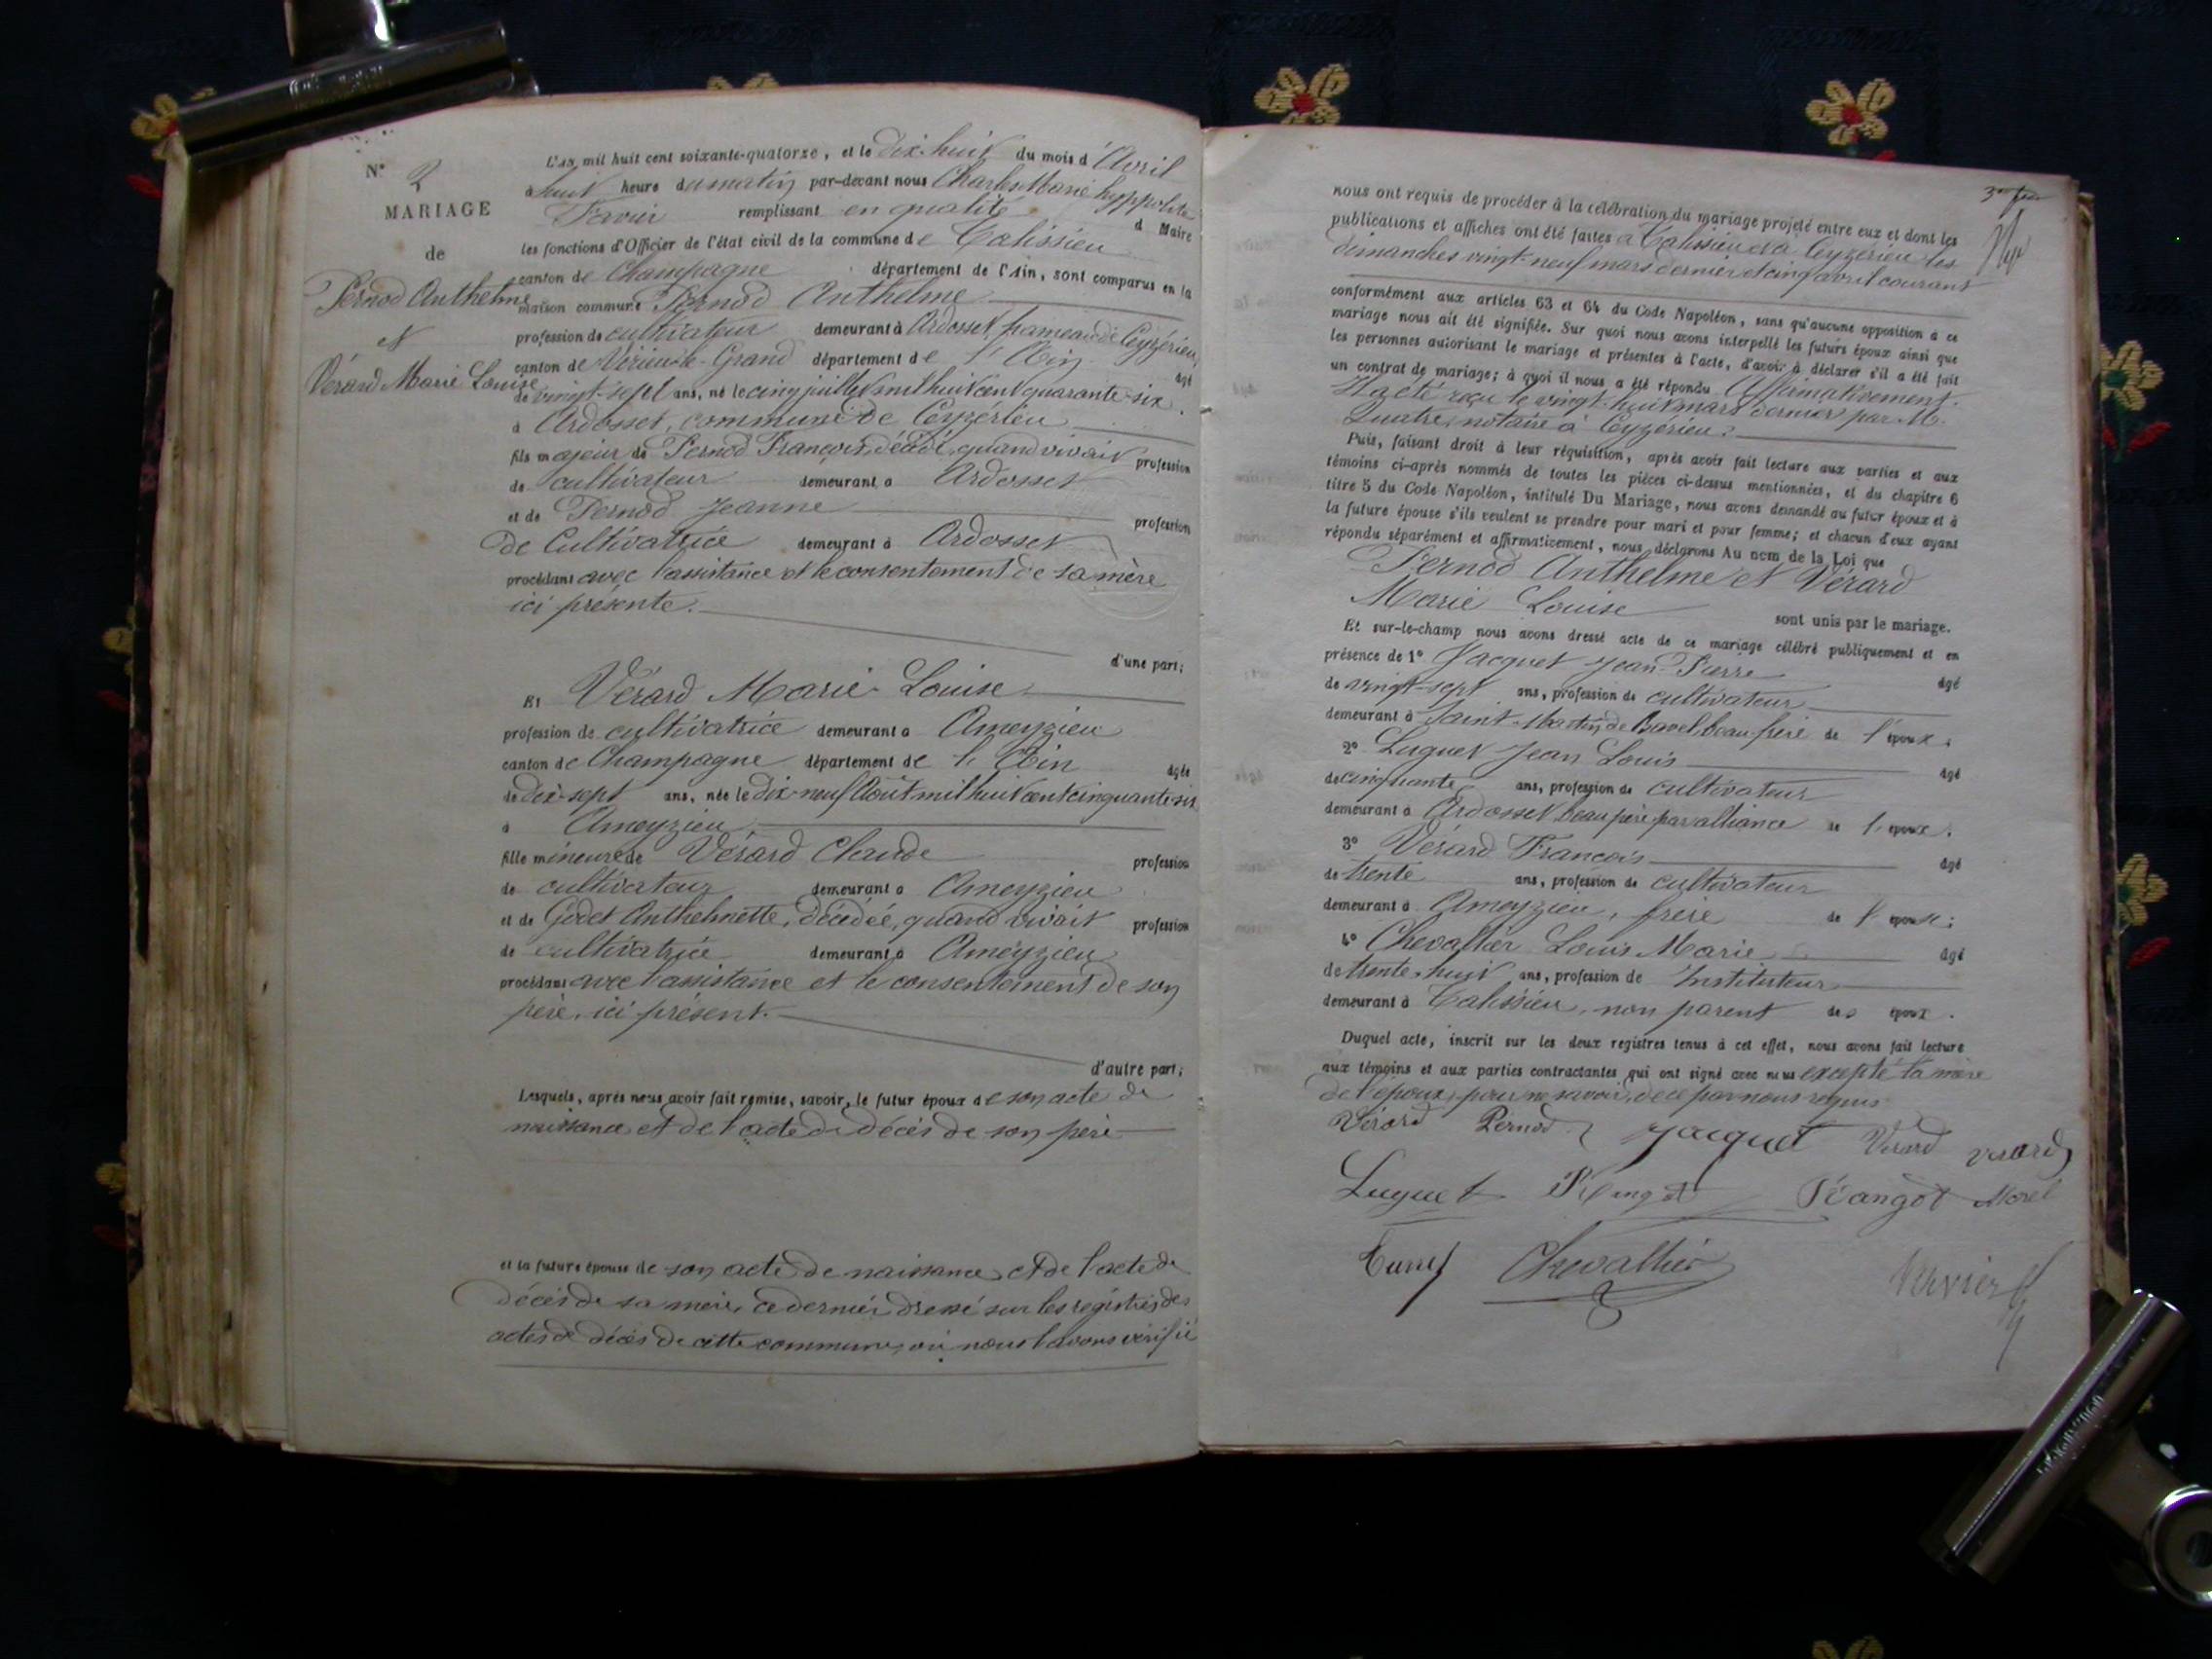 N° 2
MARIAGE
de
Pernod Anthelme
et
Vérard Marie Louise
L'an mil huit cent soixante-quatorze, et le dix-huit du mois d'Avril
à huit heure du matin par-devant nous Charles Marie hyppolite
remplissant en qualité d Maire
les fonctions d'Officier de l'état civil de la commune de Talissieu
canton de Champagne département de l'Ain, sont comparus en la
maison commune Pernod Anthelme
profession de cultivateur demeurant à Ardosset, hameau de Ceyzérieu,
canton de Virieu-le-Grand département de l'Ain âgé
de vingt-sept ans, né le cinq juillet mil huit cent quarante-six.
à Ardosset, commune de Ceyzérieu
fils majeur de Pernod François, décédé, quand vivait profession
de cultivateur demeurant à Ardosset
et de Pernod Jeanne profession
de Cultivatrice demeurant à Ardosset
procédant avec l'assistance et le consentement de sa mère
ici présente.
d'une part;
Et Vérard Marie-Louise
profession de cultivatrice demeurant à Ameyzieu
canton de Champagne département de l'Ain âgée
de dix-sept ans, née le dix-neuf Août mil huit cent cinquante-six
à Ameyzieu
fille mineure de Vérard Claude profession
de cultivateur demeurant à Ameyzieu
et de Godet Anthelmette, décédée, quand vivait profession
de cultivatrice demeurant à Ameyzieu
procédant avec l'assistance et le consentement de son
père, ici présent.
d'autre part;
Lesquels, après nous avoir fait remise, savoir, le futur époux de son acte de
naissance et de l'acte de décès de son père
et la future épouse de son acte de naissance et de l'acte de
décès de sa mère, ce dernier dressé sur les registres des
actes de décès de cette commune, où nous l'avons vérifié
nous ont requis de procéder à la célébration du mariage projeté entre eux et dont les
publications et affiches ont été faites à Talissieu et à Ceyzérieu les
dimanches vingt-neuf mars dernier et cinq avril courant
conformément aux articles 63 et 64 du Code Napoléon, sans qu'aucune opposition à ce
mariage nous ait été signifiée. Sur quoi nous avons interpellé les futurs époux ainsi que
les personnes autorisant le mariage et présentes à l'acte, d'avoir à déclarer s'il a été fait
un contrat de mariage; à quoi il nous a été répondu Affirmativement.
Il a été reçu le vingt-huit mars dernier par Me
notaire à Ceyzérieu.
Puis, faisant droit à leur réquisition, après avoir fait lecture aux parties et aux
témoins ci-après nommés de toutes les pièces ci-dessus mentionnées, et du chapitre 6
titre 5 du Code Napoléon, intitulé Du Mariage, nous avons demandé au futur époux et à
la future épouse s'ils veulent se prendre pour mari et pour femme; et chacun d'eux ayant
répondu séparément et affirmativement, nous déclarons Au nom de la Loi que
Pernod Anthelme et Vérard
Marie Louise sont unis par le mariage.
Et sur-le-champ nous avons dressé acte de ce mariage célébré publiquement et en
présence de 1° Jacquet Jean-Pierre âgé
de vingt-sept ans, profession de cultivateur
demeurant à Saint-Martin de Bavel, beau-frère de l'époux;
2° Luguet Jean Louis âgé
de cinquante ans, profession de cultivateur
demeurant à Ardosset, beau père par alliance de l'époux.
3° Vérard François âgé
de trente ans, profession de cultivateur
demeurant à Ameyzieu, frère de l'épouse;
4° Chevallier Louis Marie âgé
de trente-huit ans, profession de Instituteur
demeurant à Talissieu, non parent des époux.
Duquel acte, inscrit sur les deux registres tenus à cet effet, nous avons fait lecture
aux témoins et aux parties contractantes qui ont signé avec nous excepté la mère
de l'époux, pour ne savoir, de ce par nous requis
Vérard Pernod Jacquet Vérard Verard
Luguet Rangot Morel
Chevallier